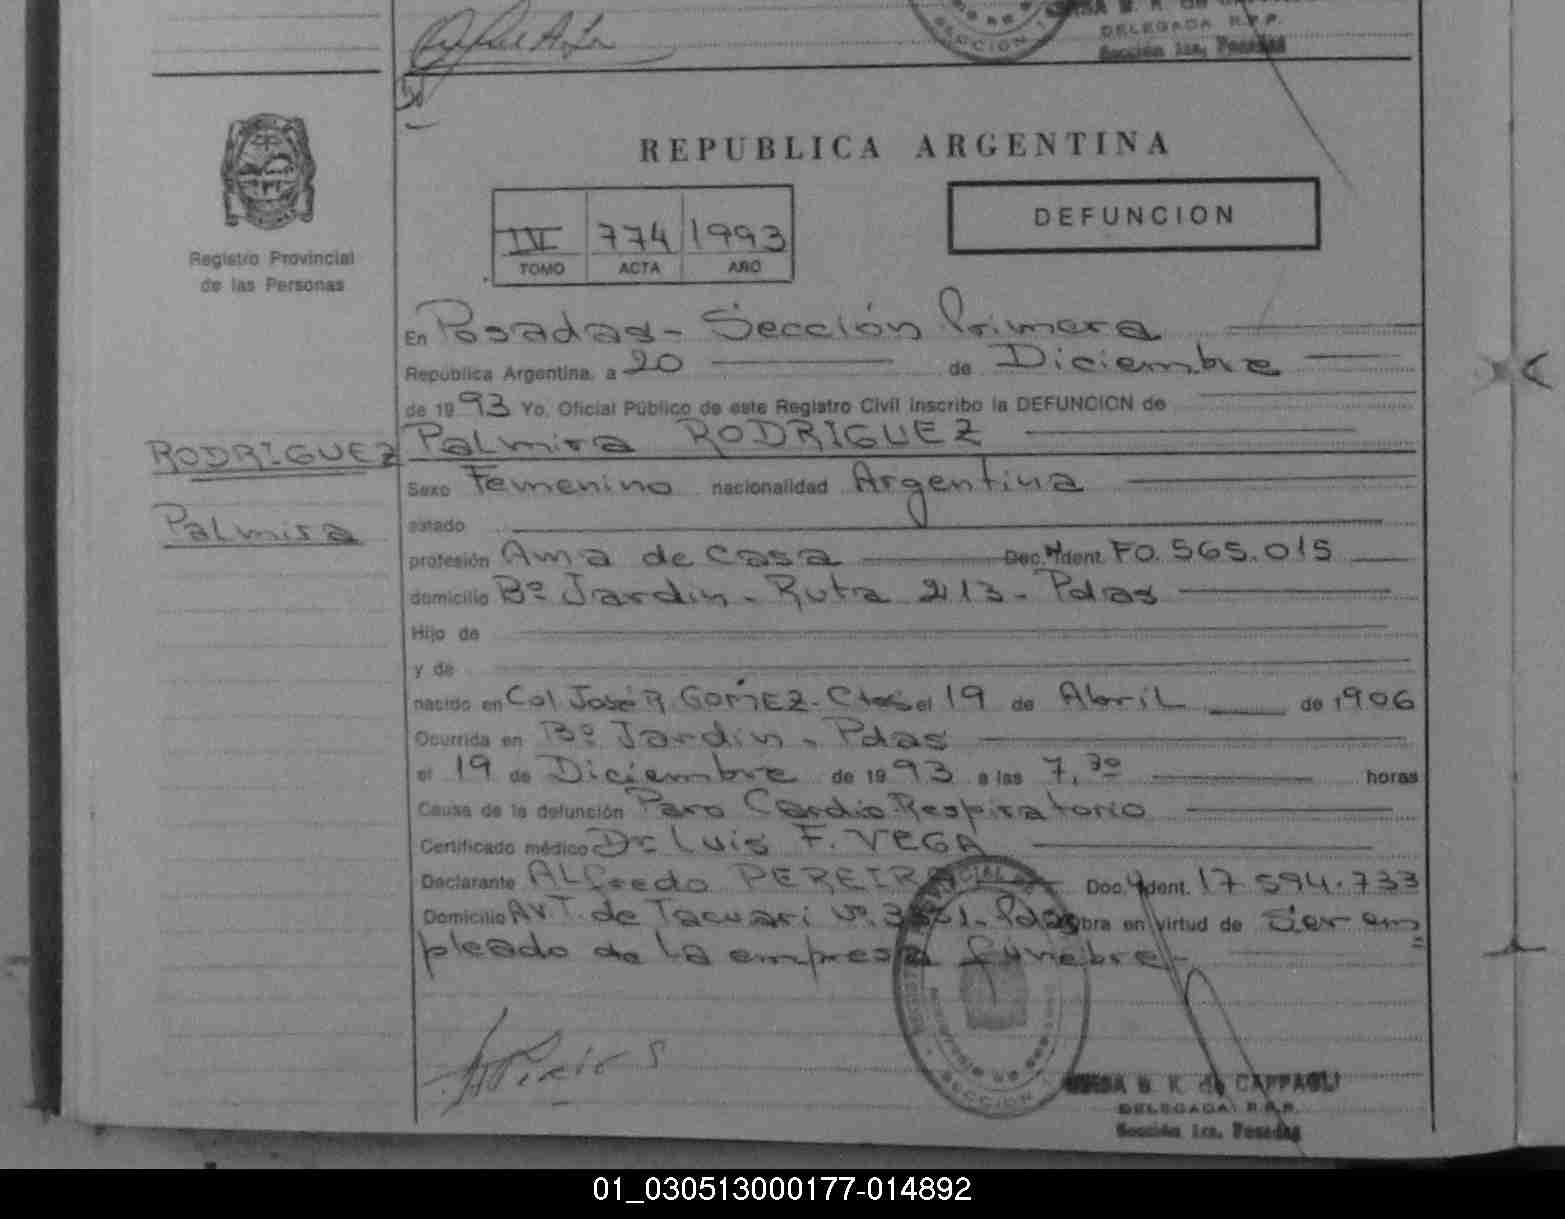 DELEGADA R.P.P.
Sección 1ra. Posadas
Registro Provincial
de las Personas
REPUBLICA ARGENTINA
DEFUNCION
IV 774 1993
TOMO ACTA AÑO
En Posadas - Sección Primera
República Argentina, a 20 de Diciembre
de 1993 Yo, Oficial Público de este Registro Civil inscribo la DEFUNCION de
RODRIGUEZ
Palmira
Palmira RODRIGUEZ
Sexo Femenino nacionalidad Argentina
estado
profesión Ama de casa Doc. Ident. F0.565.015
domicilio Bº Jardin - Ruta 213 - Pdas
Hijo de
y de
nacido en Col José R. GOMEZ - Ctes el 19 de Abril de 1906
Ocurrida en Bº Jardin - Pdas
el 19 de Diciembre de 1993 a las 7,30 horas
Causa de la defunción Paro Cardio Respiratorio
Certificado médico Dr Luis F. VEGA
Declarante Alfredo PEREIRA Doc. Ident. 17.594.733
Domicilio Av. T. de Tacuari Nº Pdas obra en virtud de Ser em
pleado de la empresa fúnebre -
SECCION 1
B. K. de CAPPAGLI
DELEGADA R.P.P.
Sección 1ra. Posadas
01_030513000177-014892